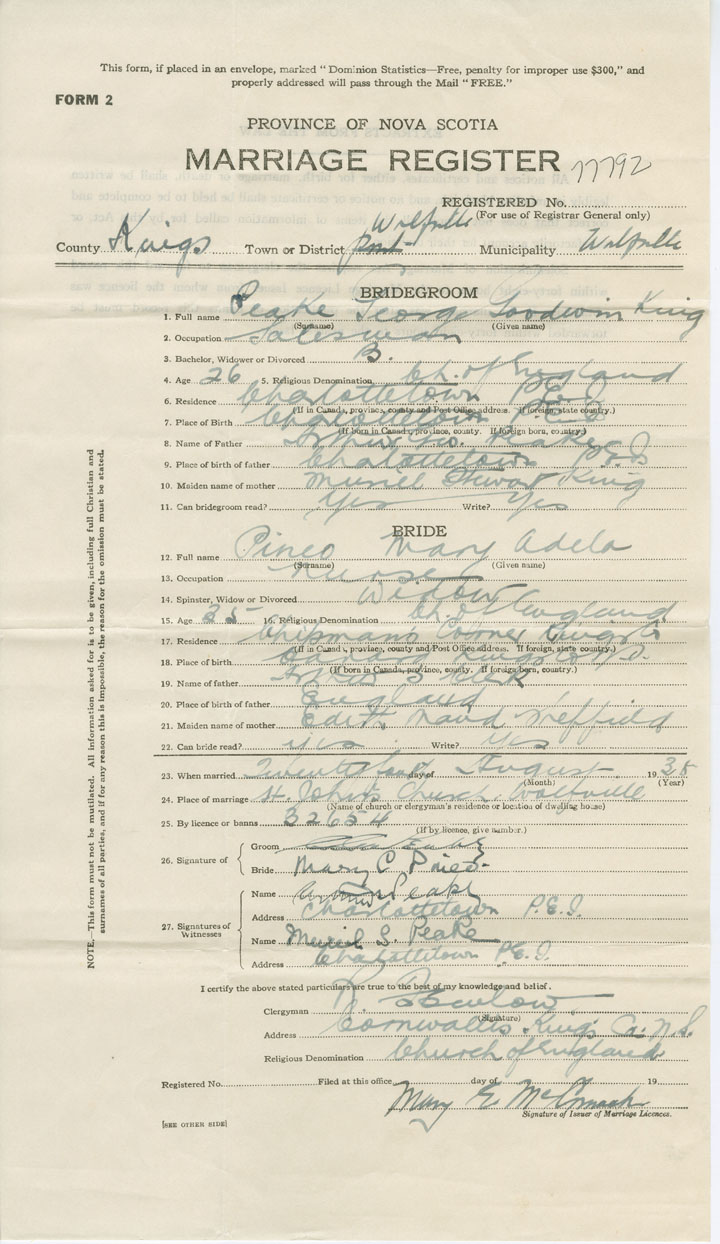 This form, if placed in an envelope, marked "Dominion Statistics—Free, penalty for improper use $300," and
properly addressed will pass through the Mail "FREE."
FORM 2
PROVINCE OF NOVA SCOTIA
MARRIAGE REGISTER 77792
REGISTERED No.
(For use of Registrar General only)
Wolfville
County Kings Town or District Municipality Wolfville
BRIDEGROOM
1. Full name Peake George Goodwin King
(Surname) (Given name)
2. Occupation Salesman
3. Bachelor, Widower or Divorced B.
4. Age 26 5. Religious Denomination Ch. of England
6. Residence Charlottetown P.E.I.
(If in Canada, province, county and Post Office address. If foreign, state country.)
7. Place of Birth Charlottetown P.E.I.
(If born in Canada, province, county. If foreign born, country.)
8. Name of Father Arthur Geo. Peake
9. Place of birth of father Charlottetown P.E.I.
10. Maiden name of mother Muriel Stewart King
11. Can bridegroom read? Yes Write? Yes
BRIDE
12. Full name Pineo Mary Adela
(Surname) (Given name)
13. Occupation Nurse
14. Spinster, Widow or Divorced Widow
15. Age 35 16. Religious Denomination Ch. of England
17. Residence Chipmans Corner Kings Co
(If in Canada, province, county and Post Office address. If foreign, state country.)
18. Place of birth Kings Co N.S.
(If born in Canada, province, county. If foreign born, country.)
19. Name of father Arthur S
20. Place of birth of father England
21. Maiden name of mother Edith Maud Sheffield
22. Can bride read? yes Write? yes
23. When married day of August 1938
(Month) (Year)
24. Place of marriage St. John's Church, Wolfville
(Name of church or clergyman's residence or location of dwelling house)
25. By licence or banns 32654
(If by licence, give number.)
26. Signature of
Groom
Bride Mary C Pineo
27. Signatures of Witnesses
Name Peake
Address Charlottetown P.E.I.
Name Muriel S. Peake
Address Charlottetown P.E.I.
I certify the above stated particulars are true to the best of my knowledge and belief.
Clergyman
(Signature)
Address Cornwallis, Kings Co. N.S.
Religious Denomination Church of England
Registered No. Filed at this office day of 19
Mary E. McCormack
Signature of Issuer of Marriage Licences.
[SEE OTHER SIDE]
NOTE.—This form must not be mutilated. All information asked for is to be given, including full Christian and
surnames of all parties, and if for any reason this is impossible, the reason for the omission must be stated.